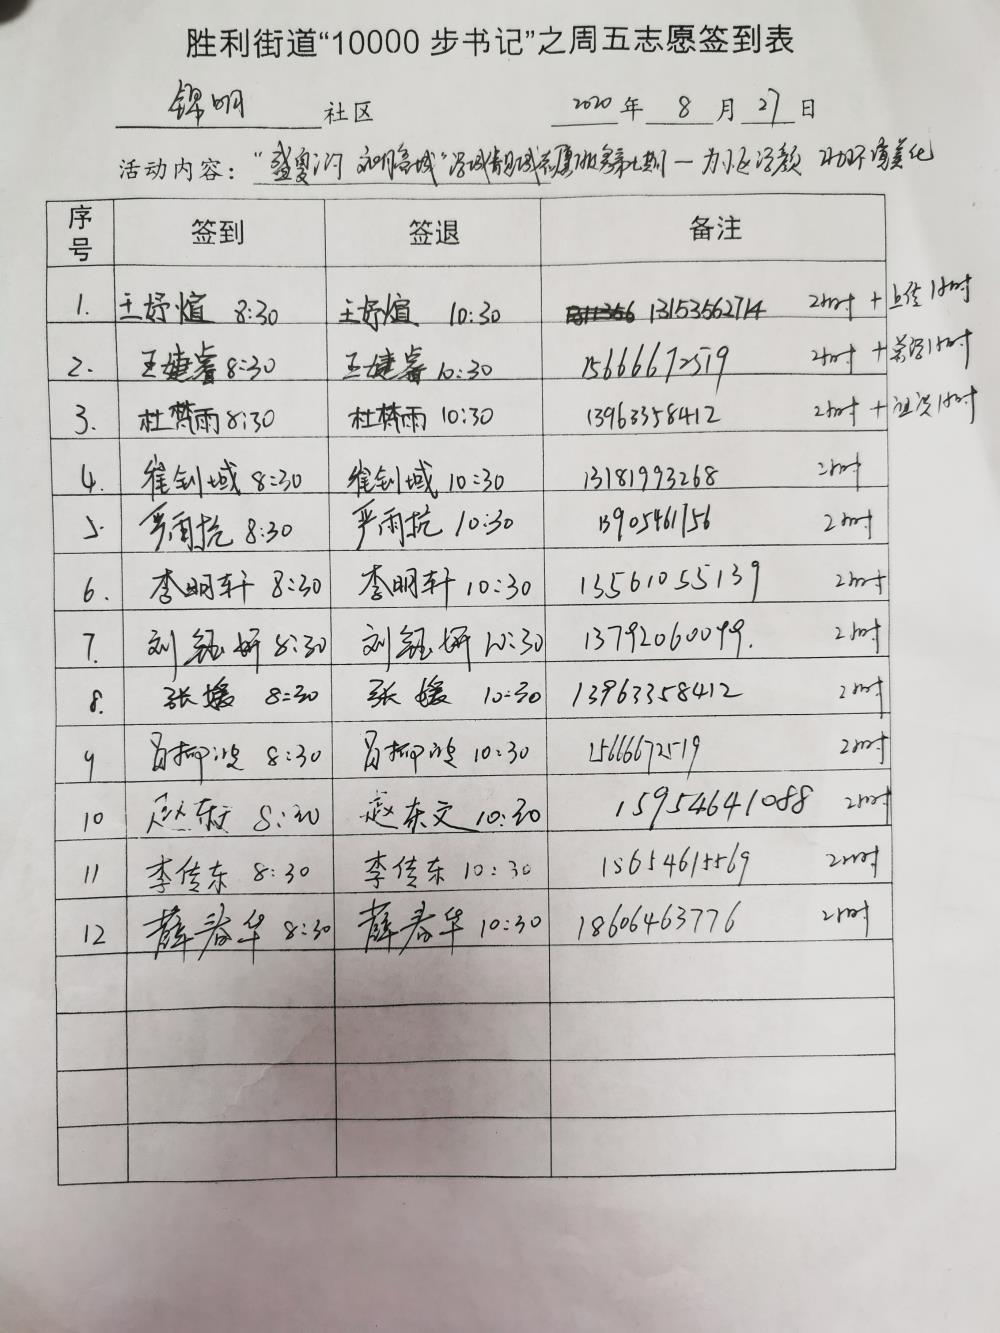 胜利街道“10000步书记”之周五志愿签到表
锦明 社区 2020 年 8 月 27 日
活动内容：“盛夏 志愿服务第七期一为小区添颜 助环境美化
序号 签到 签退 备注
1. 王妤煊 8:30 王妤煊 10:30 13153562714 2小时 + 上传1小时
2. 王婕睿 8:30 王婕睿 10:30 15666672519 2小时 + 1小时
3. 杜梵雨 8:30 杜梵雨 10:30 13963358412 2小时 + 1小时
4. 崔钊域 8:30 崔钊域 10:30 13181993268 2小时
5. 严雨抗 8:30 严雨抗 10:30 13905461756 2小时
6. 李明轩 8:30 李明轩 10:30 13561055139 2小时
7. 刘钰妍 8:30 刘钰妍 10:30 13792060099. 2小时
8. 张媛 8:30 张媛 10:30 13963358412 2小时
9 吕柳 8:30 吕柳 10:30 15666672519 2小时
10 赵东文 8:30 赵东文 10:30 15954641088 2小时
11 李传东 8:30 李传东 10:30 15654615569 2小时
12 薛春华 8:30 薛春华 10:30 18606463776 2小时